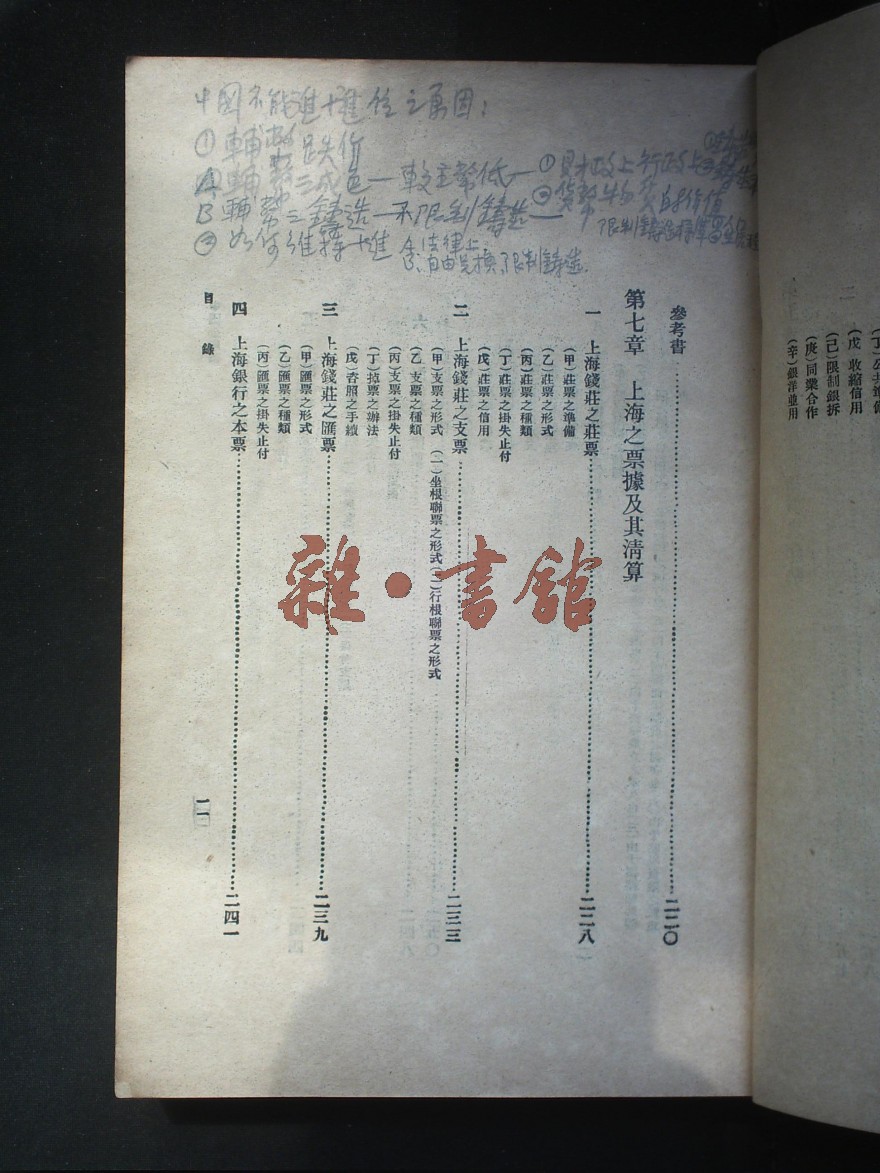 中國不能進十進位之原因：
① 輔幣跌价
A 輔幣之成色一較主幣低一① 財政上行政上
B 輔幣之鑄造一不限制鑄造一
② 如何維持十進
法律上
自由兌換、限制鑄造
參考書……二二〇
第七章　上海之票據及其清算
一　上海錢莊之莊票……二二八
（甲）莊票之準備
（乙）莊票之形式
（丙）莊票之種類
（丁）莊票之掛失止付
（戊）莊票之信用
二　上海錢莊之支票……二三三
（甲）支票之形式　（一）坐根聯票之形式（二）行根聯票之形式
（乙）支票之種類
（丙）支票之掛失止付
（丁）掉票之辦法
（戊）杳照之手續
三　上海錢莊之匯票……二三九
（甲）匯票之形式
（乙）匯票之種類
（丙）匯票之掛失止付
四　上海銀行之本票……二四一
目　錄
一一
雜·書館
（戊）收縮信用
（己）限制銀拆
（庚）同業合作
（辛）銀洋並用